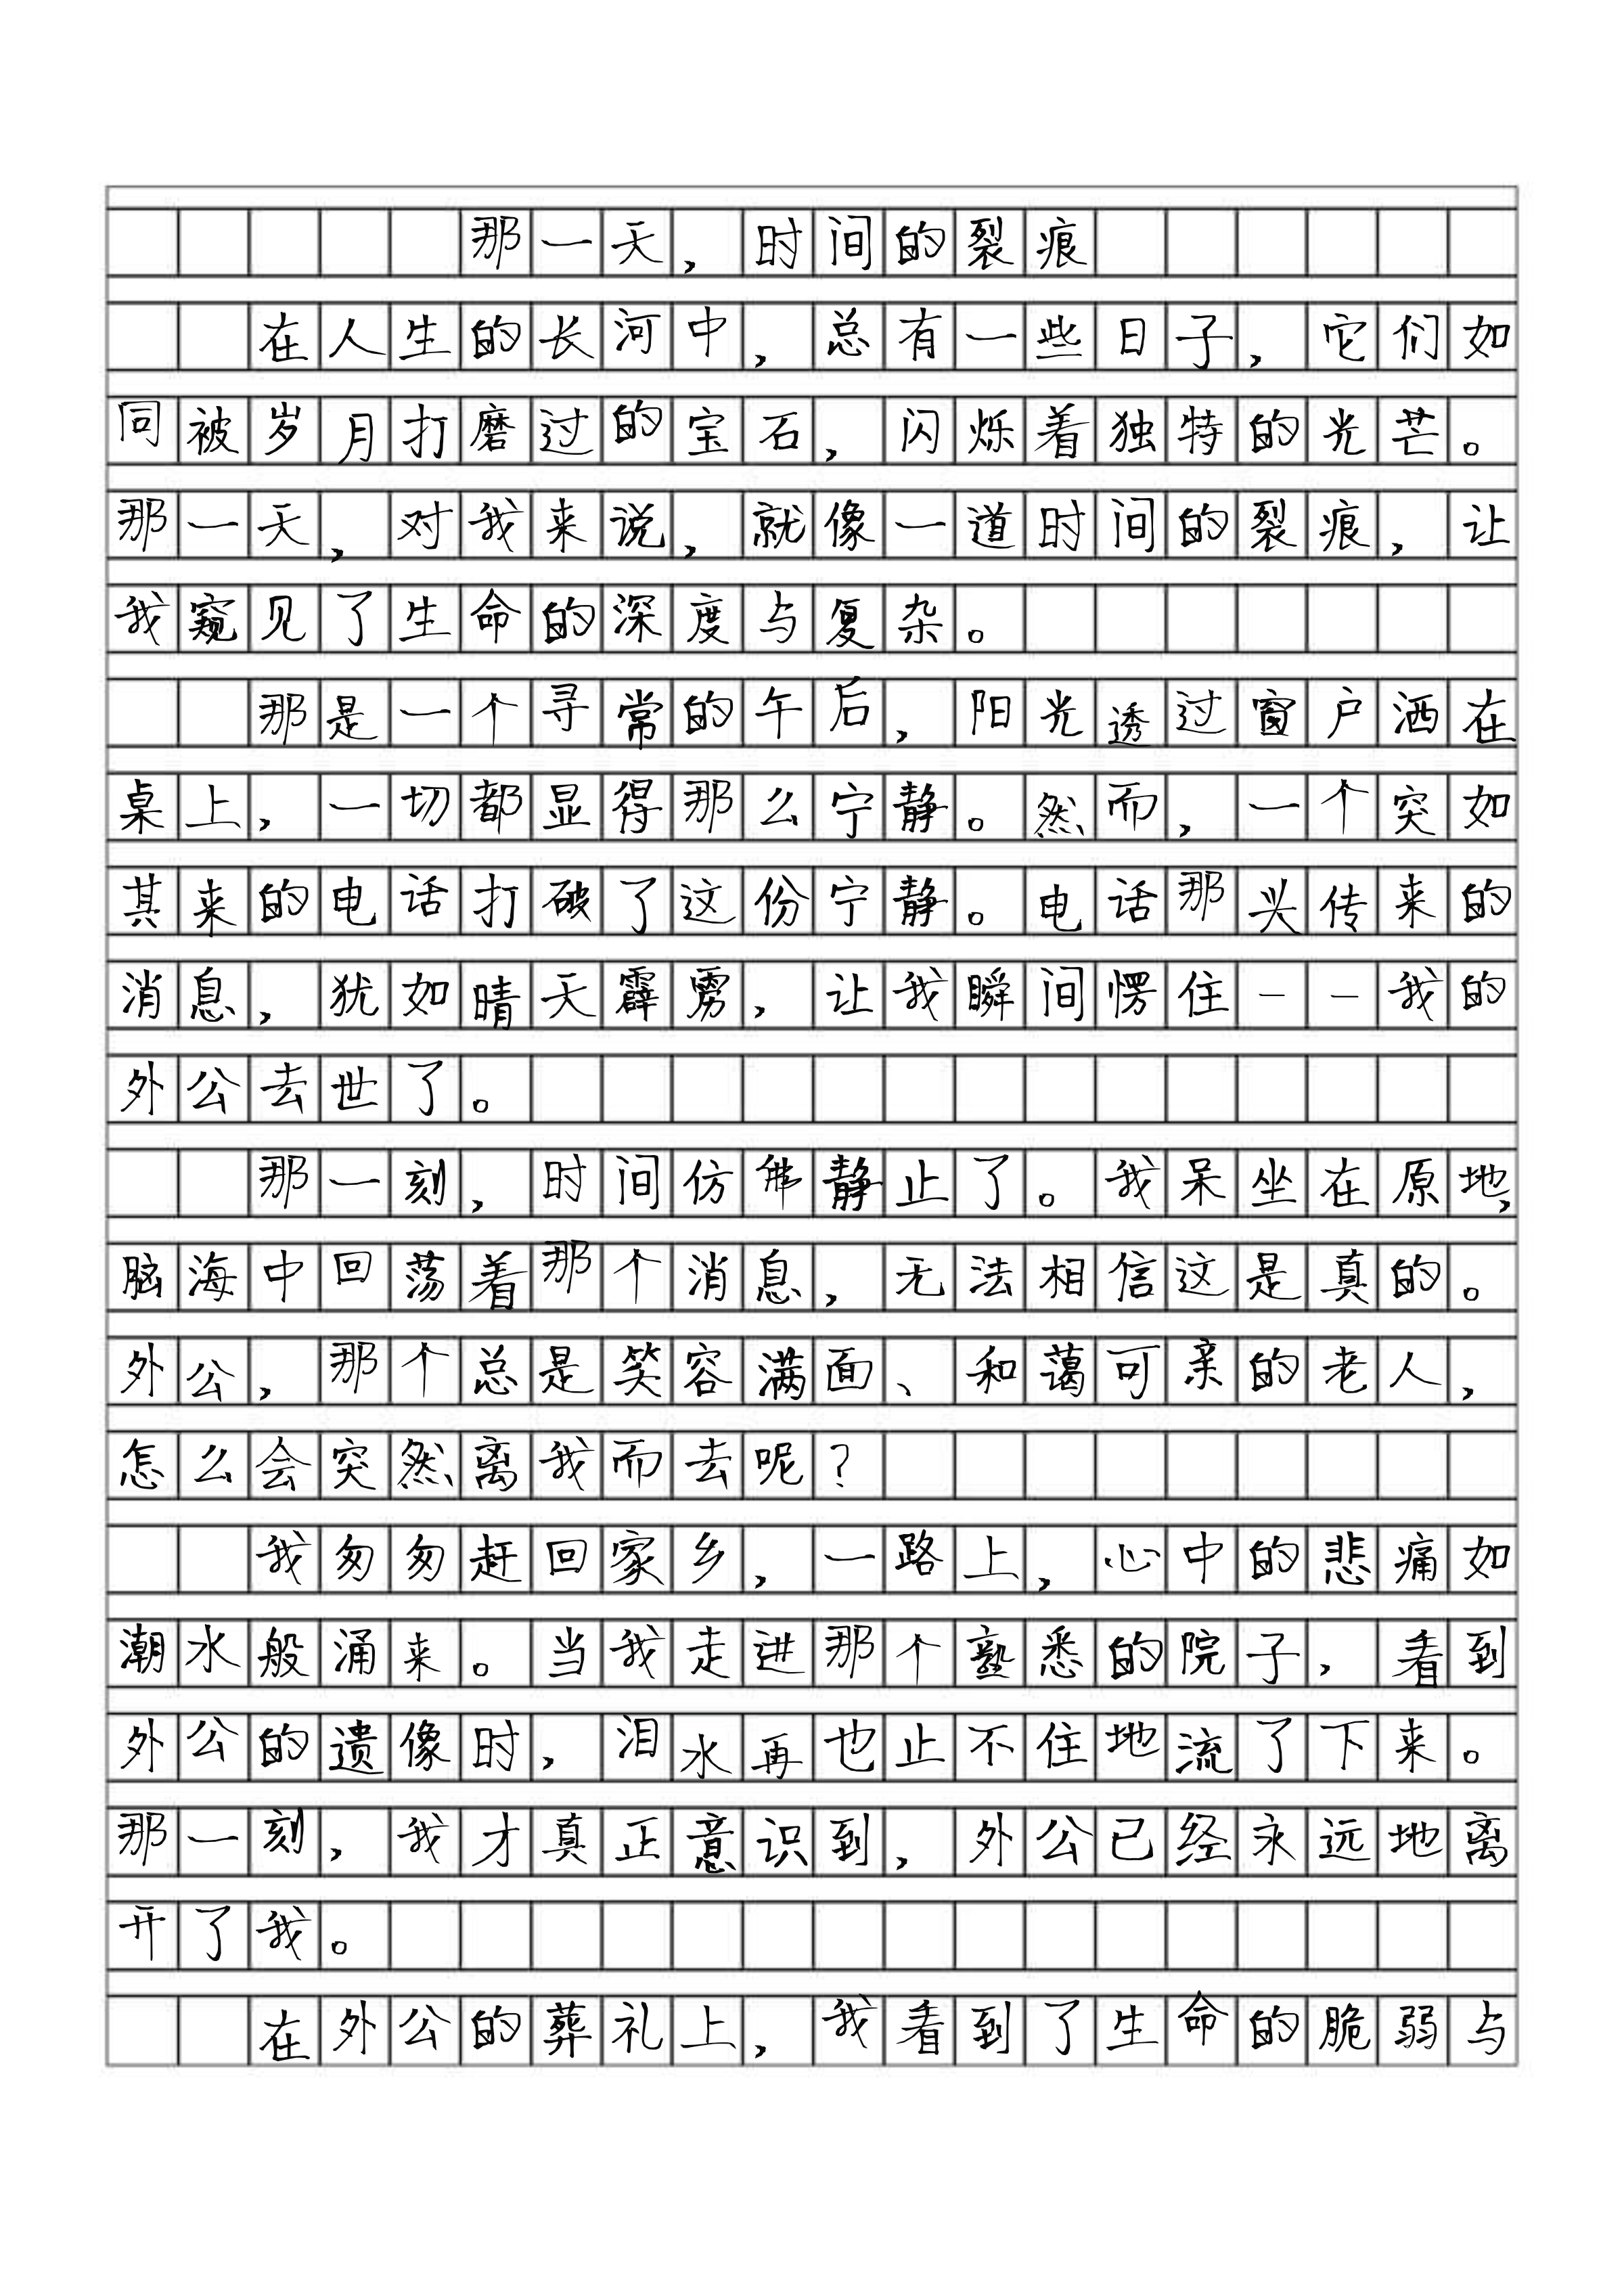 那一天，时间的裂痕
在人生的长河中，总有一些日子，它们如
同被岁月打磨过的宝石，闪烁着独特的光芒。
那一天，对我来说，就像一道时间的裂痕，让
我窥见了生命的深度与复杂。
那是一个寻常的午后，阳光透过窗户洒在
桌上，一切都显得那么宁静。然而，一个突如
其来的电话打破了这份宁静。电话那头传来的
消息，犹如晴天霹雳，让我瞬间愣住——我的
外公去世了。
那一刻，时间仿佛静止了。我呆坐在原地，
脑海中回荡着那个消息，无法相信这是真的。
外公，那个总是笑容满面、和蔼可亲的老人，
怎么会突然离我而去呢？
我匆匆赶回家乡，一路上，心中的悲痛如
潮水般涌来。当我走进那个熟悉的院子，看到
外公的遗像时，泪水再也止不住地流了下来。
那一刻，我才真正意识到，外公已经永远地离
开了我。
在外公的葬礼上，我看到了生命的脆弱与